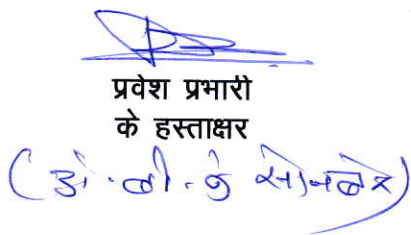 प्रवेश प्रभारी
के हस्ताक्षर
(डॉ. बी. के सोनबेर)